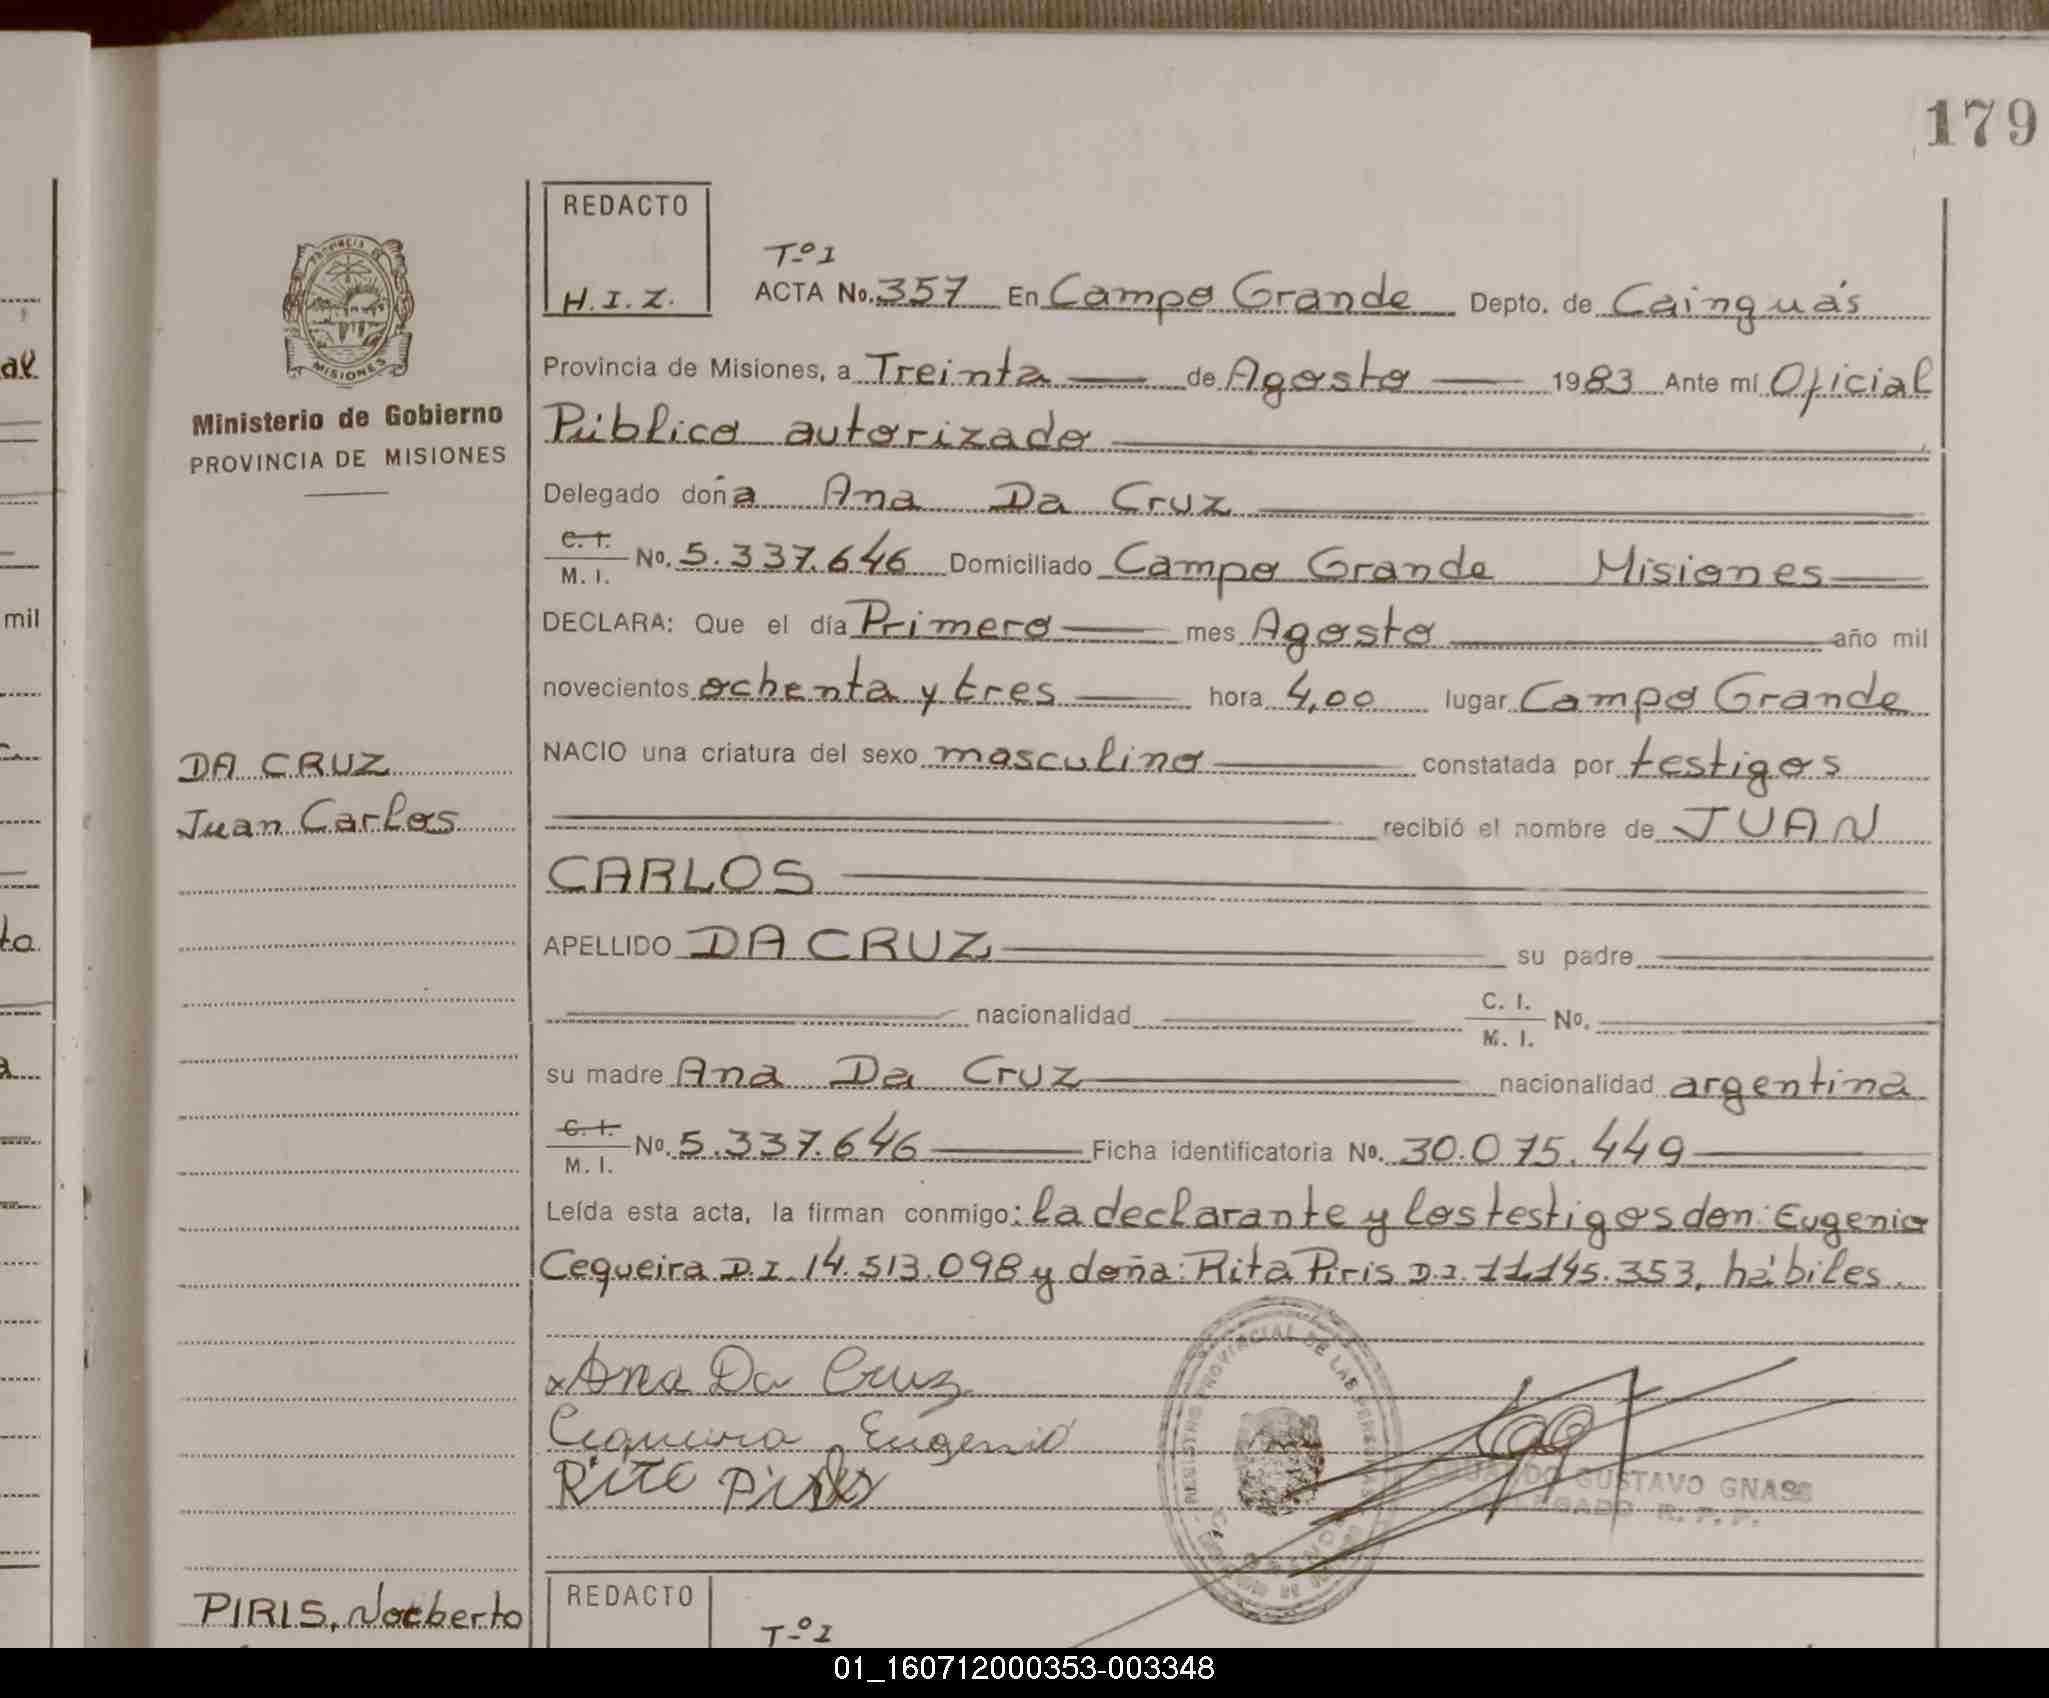 179
REDACTO
H. I. Z.
Tº I
ACTA No. 357 En Campo Grande Depto. de Cainguás
Provincia de Misiones, a Treinta de Agosto 1983 Ante mí Oficial
Público autorizado
Delegado doña Ana Da Cruz
C. I. / M. I. No. 5.337.646 Domiciliado Campo Grande Misiones
DECLARA: Que el día Primero mes Agosto año mil
novecientos ochenta y tres hora 4,00 lugar Campo Grande
NACIO una criatura del sexo masculino constatada por testigos
recibió el nombre de JUAN
CARLOS
APELLIDO DA CRUZ su padre
nacionalidad C. I. / M. I. No.
su madre Ana Da Cruz nacionalidad argentina
C. I. / M. I. No. 5.337.646 Ficha identificatoria No. 30.075.449
Leída esta acta, la firman conmigo: la declarante y los testigos don: Eugenio
Cequeira D.I. 14.513.098 y doña: Rita Piris D.I. 11.145.353, hábiles.
x Ana Da Cruz
Cequeira Eugenio
Rite Piris
REGISTRO PROVINCIAL DE LAS PERSONAS
EDUARDO GUSTAVO GNASS
DELEGADO R. P. P.
PROVINCIA DE MISIONES
Ministerio de Gobierno
PROVINCIA DE MISIONES
DA CRUZ
Juan Carlos
PIRIS, Norberto
REDACTO
Tº I
al
mil
to
a
01_160712000353-003348